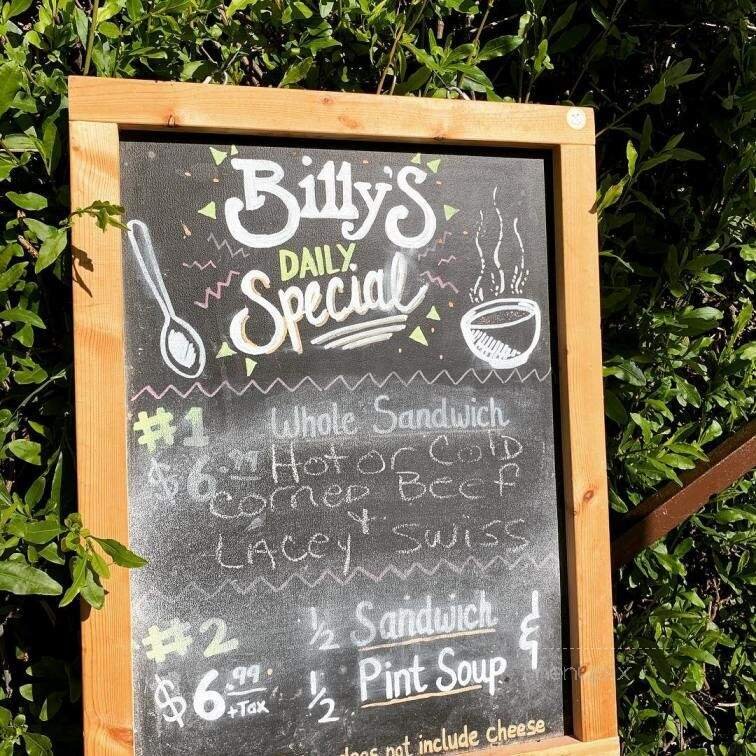 Billy's
DAILY
Special
#1 Whole Sandwich
$6.99 Hot or Cold
Corned Beef
+
LACEY SWISS
#2 1/2 Sandwich &
$6.99 +Tax 1/2 Pint Soup
does not include cheese